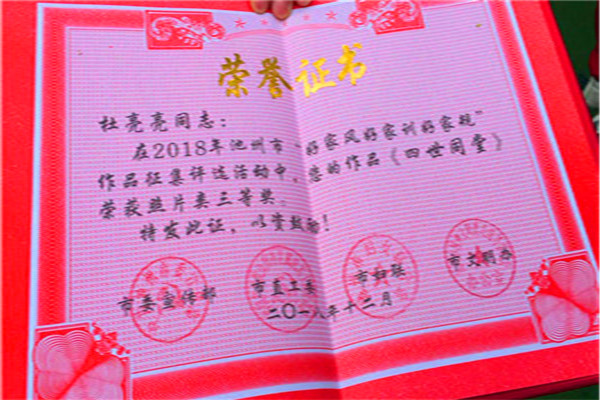 荣誉证书
杜亮亮同志：
在2018年池州市“好家风好家训好家规”
作品征集评选活动中，您的作品《四世同堂》
荣获照片类三等奖。
特发此证，以资鼓励！
市委宣传部 市直工委 市妇联 市文明办
二〇一八年十二月